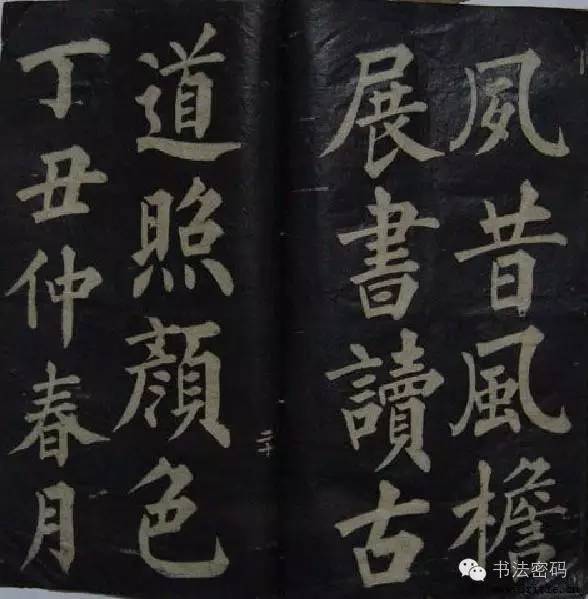 夙昔風檐
展書讀古
道照顏色
丁丑仲春月
二十
书法密码